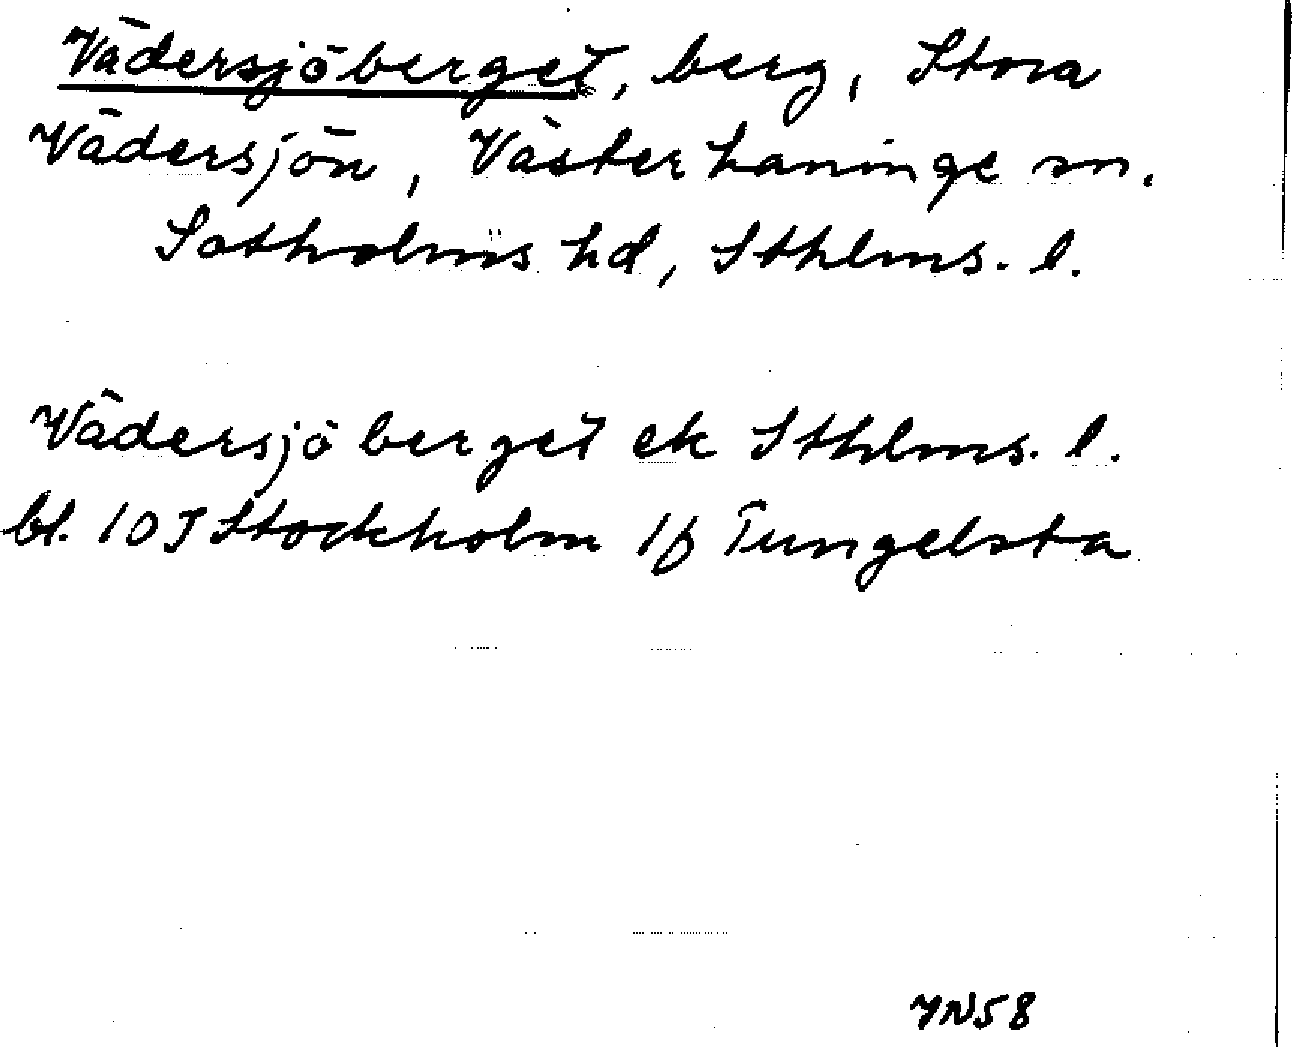 Vädersjöberget, berg, Stora
Vädersjön, Västerhaninge sn.
Sotholms hd, Sthlms. l.
Vädersjöberget ek Sthlms. l.
bl. 10J Stockholm 1f Tungelsta
YN58